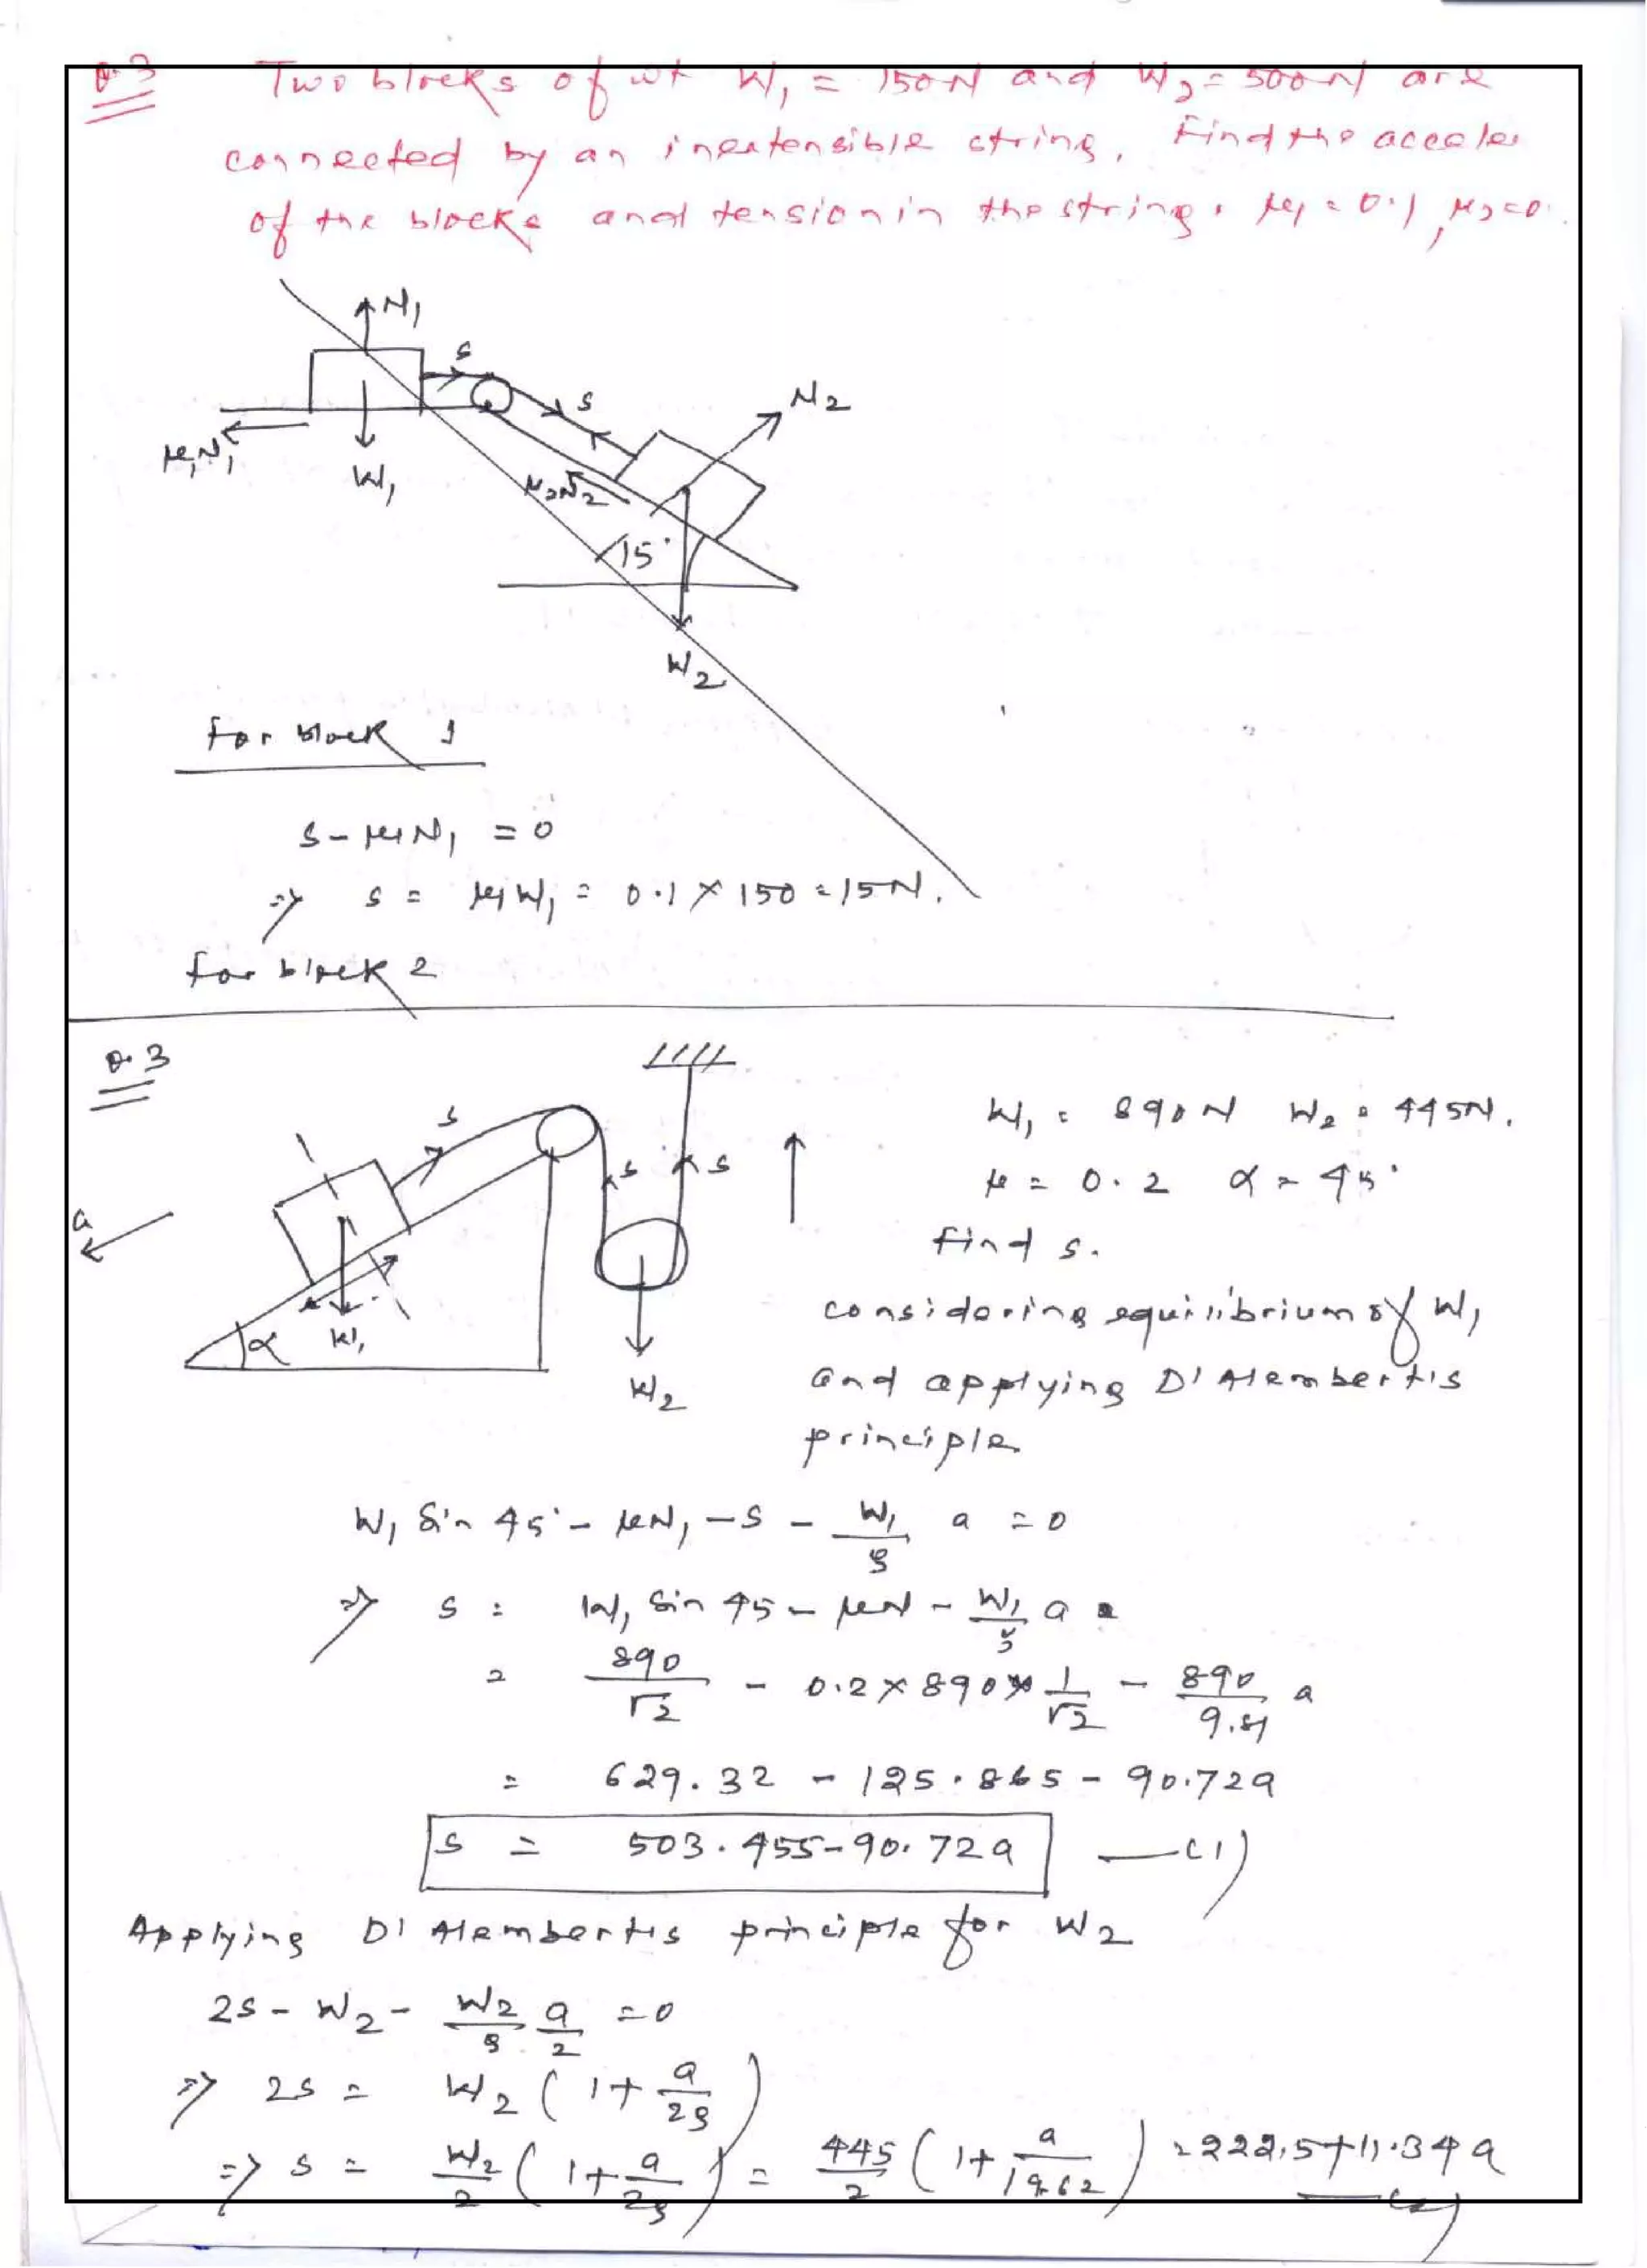 Q.3 Two blocks of wt W₁ = 150N and W₂ = 500N are
connected by an inextensible string. Find the acceler
of the blocks and tension in the string. μ₁ = 0.1, μ₂ = 0.
N₁
S
S
N₂
μ₁N₁
W₁
μ₂N₂
15°
W₂
For block 1
S - μ₁N₁ = 0
⇒ S = μ₁W₁ = 0.1 × 150 = 15N.
For block 2
Q.3
W₁ = 890N W₂ = 445N.
μ = 0.2 α = 45°
Find S.
S
S
S
a
α
W₁
W₂
considering equilibrium of W₁
and applying D'Alembert's
principle
W₁ Sin 45° - μN₁ - S - W₁/g a = 0
⇒ S = W₁ Sin 45 - μN - W₁/g a =
= 890/√2 - 0.2 × 890 × 1/√2 - 890/9.81 a
= 629.32 - 125.865 - 90.72a
S = 503.455 - 90.72a —(1)
Applying D'Alembert's principle for W₂
2S - W₂ - W₂/g a/2 = 0
⇒ 2S = W₂ (1 + a/2g)
⇒ S = W₂/2 (1 + a/2g) = 445/2 (1 + a/19.62) = 222.5 + 11.34a
—(2)